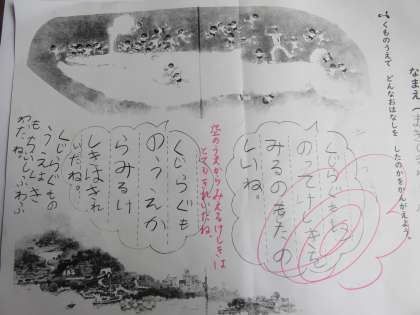 なまえ
くものうえで どんなおはなしを したのかをかんがえよう。
くじらぐもに
のってけしきを
みるのもたの
しいね。
空のうえからみえるけしきは
とてもきれいだね。
くじらぐも
のうえか
らみるけ
しきはきれ
いだね。
くじらぐもの
うえは